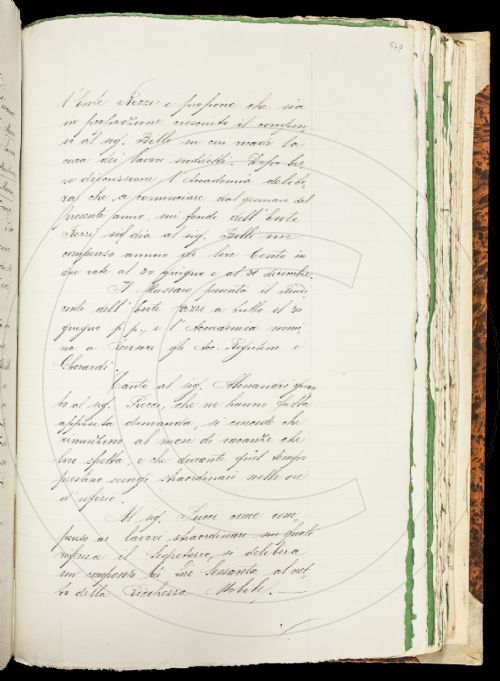 647
l'Ente Rezzi e propone che sia
in proporzione cresciuto il compen-
so al sig. Billi in cui ricade la
cura dei lavori suddetti. Dopo bre-
ve discussione l'Accademia delibe-
ra che, a cominciare dal gennaio del
presente anno, sui fondi dell'Ente
Rezzi si dia al sig. Billi un
compenso annuo di lire Cento in
due rate al 30 giugno e al 31 dicembre.
Il Massaro presenta il Rendi-
conto dell'Ente Rezzi a tutto il 30
giugno p.p., e l'Accademia nomi-
na a Censori gli Acc. Rigutini e
Gherardi.
Tanto al sig. Alessandri quan-
to al sig. Fucci, che ne hanno fatta
apposita domanda, si concede che
rinunzino al mese di vacanze che
loro spetta, e che durante quel tempo
prestino servigi straordinari nelle ore
d'ufizio.
Al sig. Fucci come com-
penso di lavori straordinari sui quali
riferisce il Segretario, si delibera
un compenso di lire Sessanta al net-
to della Ricchezza Mobile. —